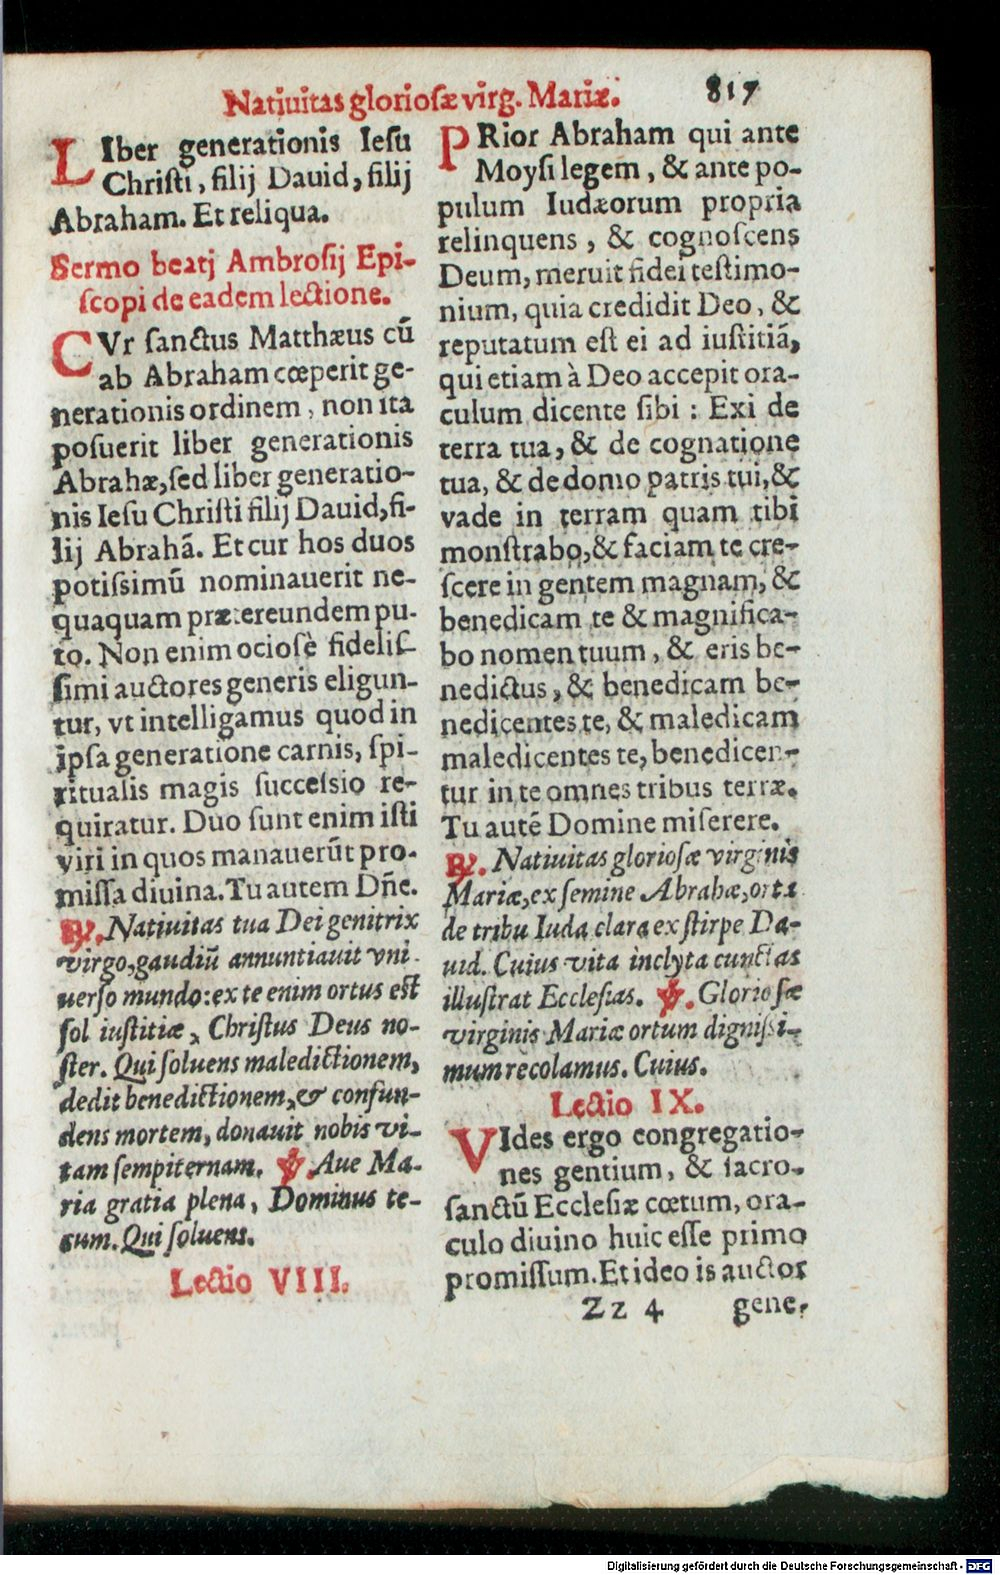 Natiuitas gloriosæ virg. Mariæ. 817
LIber generationis Iesu
Christi, filij Dauid, filij
Abraham. Et reliqua.
Sermo beatj Ambrosij Epi-
scopi de eadem lectione.
CVr sanctus Matthæus cū
ab Abraham cœperit ge-
nerationis ordinem, non ita
posuerit liber generationis
Abrahæ, sed liber generatio-
nis Iesu Christi filij Dauid, fi-
lij Abrahā. Et cur hos duos
potissimū nominauerit ne-
quaquam prætereundem pu-
to. Non enim ociosè fidelis-
simi auctores generis eligun-
tur, vt intelligamus quod in
ipsa generatione carnis, spi-
ritualis magis successio re-
quiratur. Duo sunt enim isti
viri in quos manauerūt pro-
missa diuina. Tu autem Dñe.
℟. Natiuitas tua Dei genitrix
virgo, gaudiū annuntiauit vni-
uerso mundo: ex te enim ortus est
sol iustitiæ, Christus Deus no-
ster. Qui soluens maledictionem,
dedit benedictionem, & confun-
dens mortem, donauit nobis vi-
tam sempiternam. ℣. Aue Ma-
ria gratia plena, Dominus te-
cum. Qui soluens.
Lectio VIII.
PRior Abraham qui ante
Moysi legem, & ante po-
pulum Iudæorum propria
relinquens, & cognoscens
Deum, meruit fidei testimo-
nium, quia credidit Deo, &
reputatum est ei ad iustitiā,
qui etiam à Deo accepit ora-
culum dicente sibi: Exi de
terra tua, & de cognatione
tua, & de domo patris tui, &
vade in terram quam tibi
monstrabo, & faciam te cre-
scere in gentem magnam, &
benedicam te & magnifica-
bo nomen tuum, & eris be-
nedictus, & benedicam be-
nedicentes te, & maledicam
maledicentes te, benedicen-
tur in te omnes tribus terræ.
Tu autē Domine miserere.
℟. Natiuitas gloriosæ virginis
Mariæ, ex semine Abrahæ, orta
de tribu Iuda clara ex stirpe Da-
uid. Cuius vita inclyta cunctas
illustrat Ecclesias. ℣. Gloriosæ
virginis Mariæ ortum dignissi-
mum recolamus. Cuius.
Lectio IX.
VIdes ergo congregatio-
nes gentium, & sacro-
sanctū Ecclesiæ cœtum, ora-
culo diuino huic esse primo
promissum. Et ideo is auctor
Zz 4 gene-
Digitalisierung gefördert durch die Deutsche Forschungsgemeinschaft - DFG